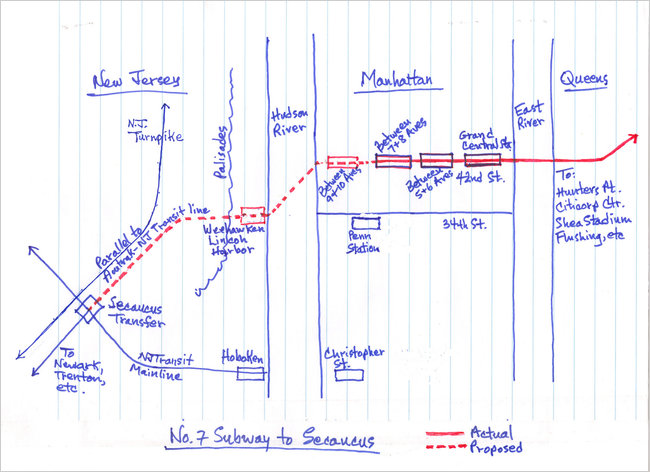 New Jersey
Manhattan
Queens
N.J.
Turnpike
Palisades
Hudson
River
East
River
Between
9+10 Aves
Between
7+8 Aves
Between
5+6 Aves
Grand
Central Sta.
42nd St.
To:
Hunters Pt.
Citicorp Ctr.
Shea Stadium
Flushing, etc
Parallel to
Amtrak-NJ Transit line
Weehawken
Lincoln
Harbor
Penn
Station
34th St.
Secaucus
Transfer
To
Newark,
Trenton,
etc.
NJ Transit
Mainline
Hoboken
Christopher
St.
No. 7 Subway to Secaucus
Actual
Proposed